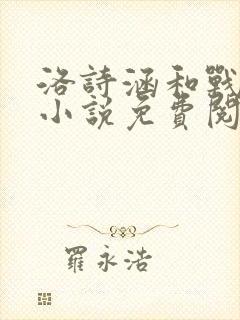 洛詩涵和戰
小說免費閱
羅永浩